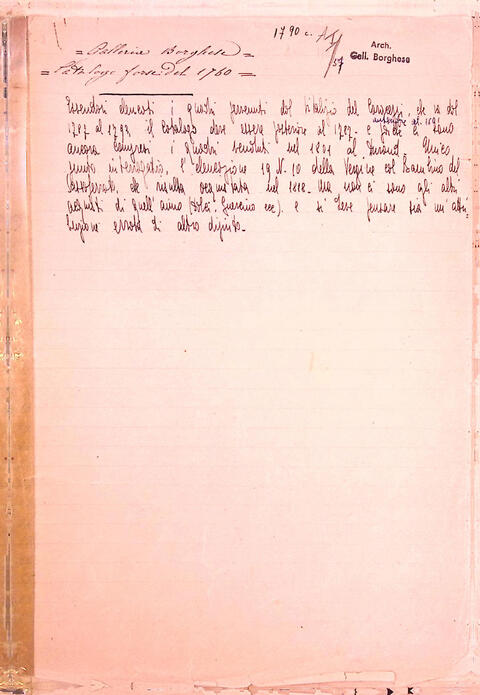 1790 c.
Arch.
Gall. Borghese
57
= Galleria Borghese =
= Catalogo forse del 1760 =
Essendovi elencati i quadri pervenuti dal vitalizio del che va dal
1787 al 1793, il catalogo deve essere posteriore al 1787. e anteriore al 1801 ci sono
ancora compresi i quadri venduti nel 1801 al Durand. Unico
punto interrogativo, l'elencazione 19 N. 10 della Vergine col Bambino del
Sassoferrato, che risulta acquistata nel 1818. Ma non ci sono gli altri
acquisti di quell'anno (Dolci, Guercino ecc) e si deve pensare sia un'attri-
buzione errata di altro dipinto.